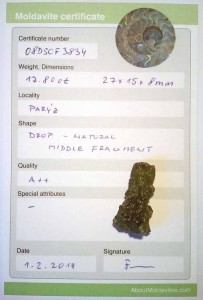 Moldavite certificate
Certificate number
08DSCF3834
Weight, Dimensions
17.80ct 27x15x8mm
Locality
Pařiž
Shape
DROP - NATURAL
MIDDLE FRAGMENT
Quality
A++
Special attributes
-
Date Signature
1.2.2019
AboutMoldavites.com